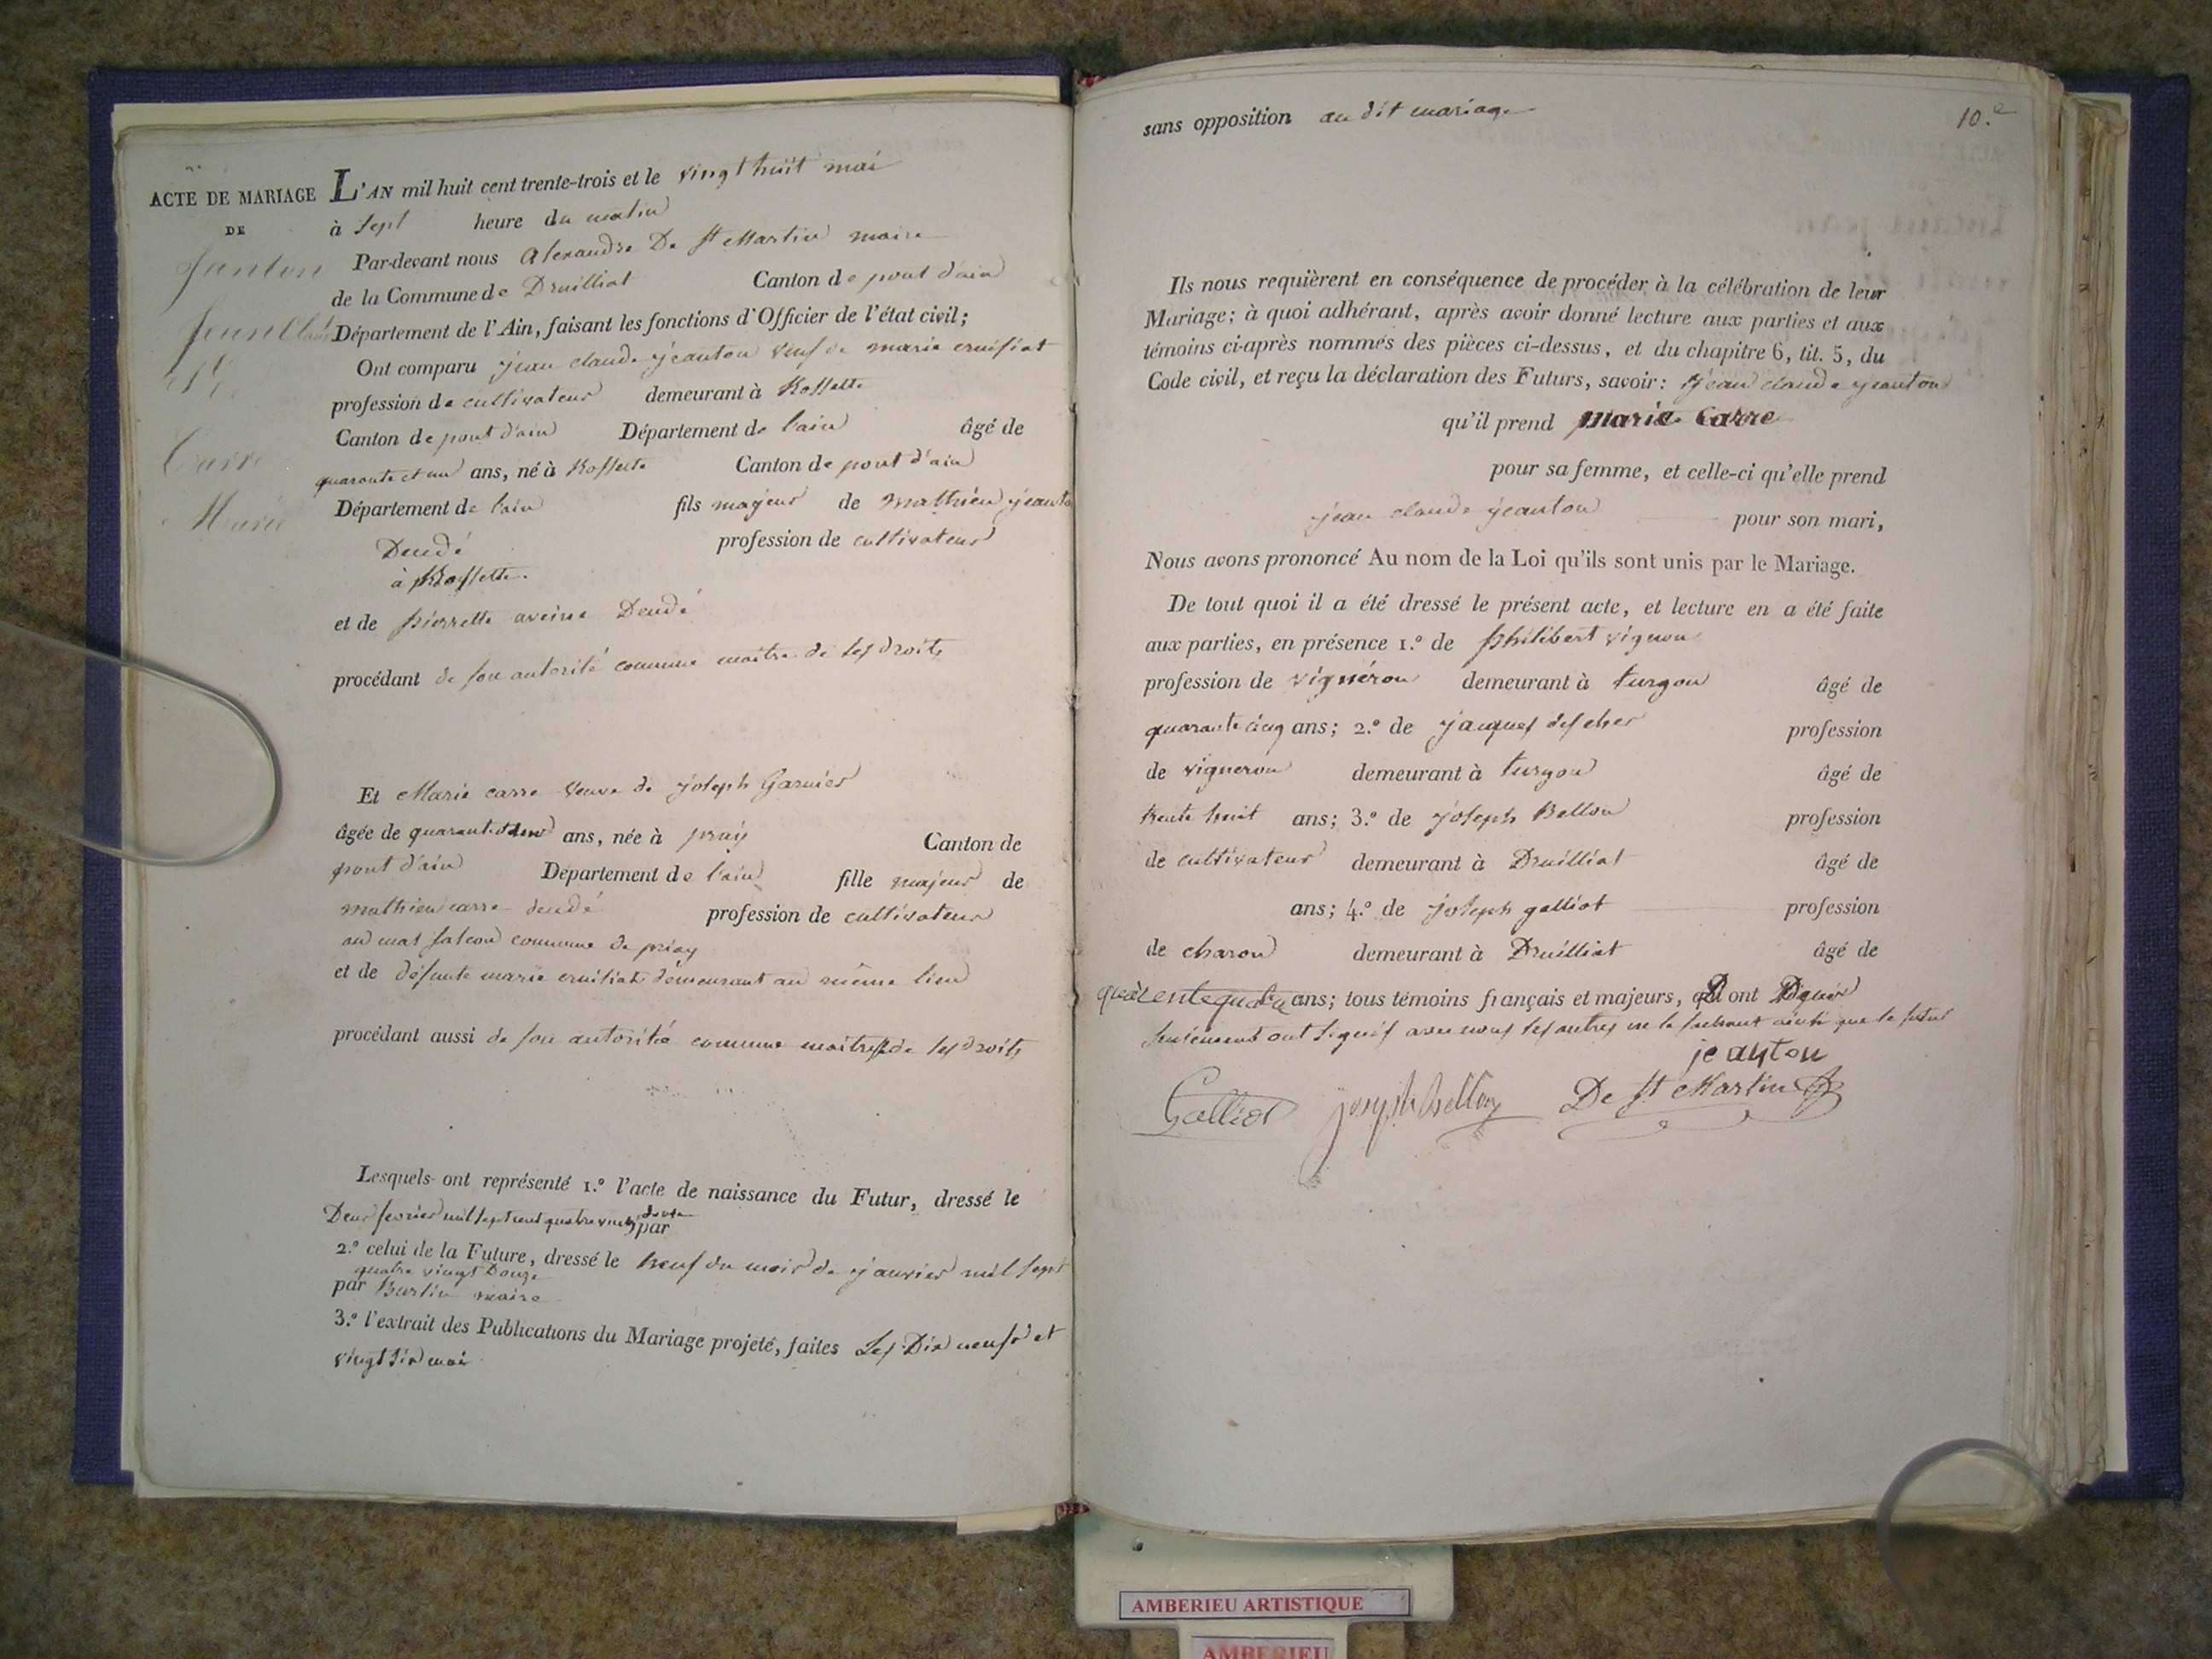 ACTE DE MARIAGE
DE
Janton
Jean Claude
et
Carre
Marie
L'AN mil huit cent trente-trois et le vingt huit mai
à Sept heure du matin
Par-devant nous Alexandre De St Martin maire
de la Commune de Druilliat Canton de pont d'ain
Département de l'Ain, faisant les fonctions d'Officier de l'état civil;
Ont comparu jean claude jeanton veuf de marie cruisiat
profession de cultivateur demeurant à Rossette
Canton de pont d'ain Département de l'ain âgé de
quarante et un ans, né à Rossette Canton de pont d'ain
Département de l'ain fils majeur de mathieu jeanton
Deudé profession de cultivateur
à Rossette
et de pierrette aveine Deudé
procédant de son autorité comme maitre de ses droits
Et Marie carre veuve de joseph Garnier
âgée de quarante deux ans, née à priay Canton de
pont d'ain Département de l'ain fille majeur de
mathieu carre deudé profession de cultivateur
au mas falcon commune de priay
et de défunte marie cruisiat demeurant au même lieu
procédant aussi de son autorité comme maitresse de ses droits
Lesquels ont représenté 1.º l'acte de naissance du Futur, dressé le
Deux fevrier mil sept cent quatre vingt douze par
2.º celui de la Future, dressé le neuf du mois de janvier mil sept
quatre vingt Douze
par Burtin maire
3.º l'extrait des Publications du Mariage projeté, faites Les Dix neuf et
vingt six mai
10.e
sans opposition au dit mariage
Ils nous requièrent en conséquence de procéder à la célébration de leur
Mariage; à quoi adhérant, après avoir donné lecture aux parties et aux
témoins ci-après nommés des pièces ci-dessus, et du chapitre 6, tit. 5, du
Code civil, et reçu la déclaration des Futurs, savoir: jean claude jeanton
qu'il prend marie carre
pour sa femme, et celle-ci qu'elle prend
jean claude jeanton pour son mari,
Nous avons prononcé Au nom de la Loi qu'ils sont unis par le Mariage.
De tout quoi il a été dressé le présent acte, et lecture en a été faite
aux parties, en présence 1.º de philibert vignon
profession de vignéron demeurant à turgon âgé de
quarante cinq ans; 2.º de jacques descher profession
de vigneron demeurant à turgon âgé de
trente huit ans; 3.º de joseph Bellon profession
de cultivateur demeurant à Druilliat âgé de
ans; 4.º de joseph galliot profession
de charon demeurant à Druilliat âgé de
quarente quatre ans; tous témoins français et majeurs, ont
seulement ont signés avec nous les autres ne le sachant ainsi que le futur
jeanton
Galliot joseph bellon De St Martin
AMBERIEU ARTISTIQUE
AMBERIEU